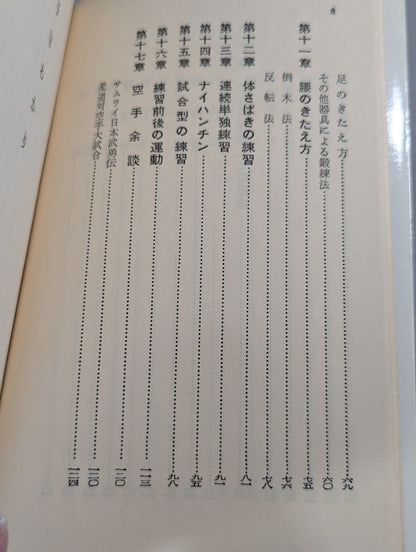 8
足のきたえ方 六九
その他器具による鍛練法 六〇
第十一章 腰のきたえ方 七五
倒木法 七六
反転法 七八
第十二章 体さばきの練習 八一
第十三章 連続単独練習 九一
第十四章 ナイハンチン 九五
第十五章 試合型の練習 九八
第十六章 練習前後の運動 一一三
第十七章 空手余談 一二〇
サムライ日本武勇伝 一二〇
柔道対空手大試合 一二四